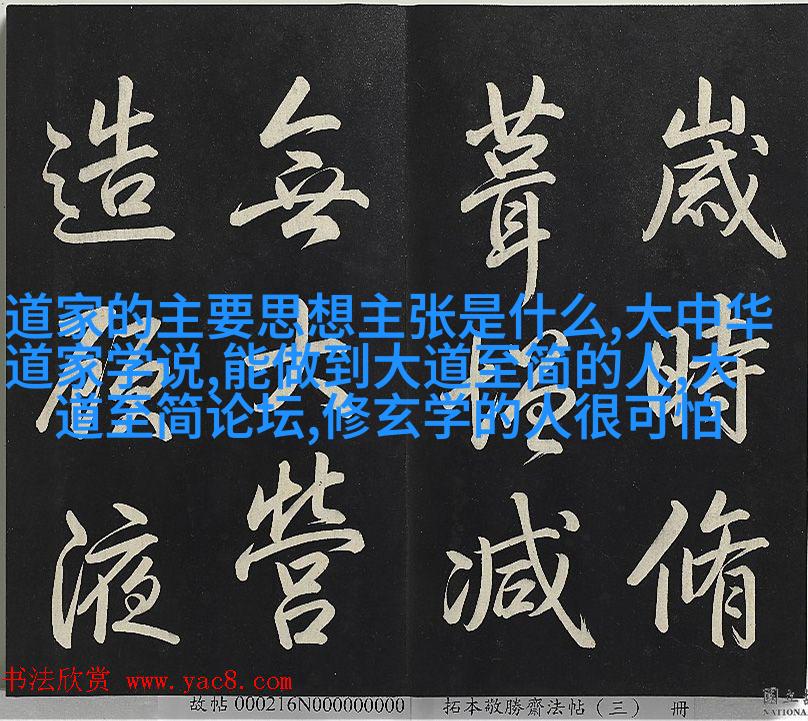 歲時脩
葺增減
無大營
造液
道家的主要思想主张是什么,大中华
道家学说,能做到大道至简的人,大
道至简论坛,修玄学的人很可怕
书法欣赏 www.yac8.com
故帖 000216N000000000 拓本敬勝齋法帖（三） 冊
國立
NATIONA